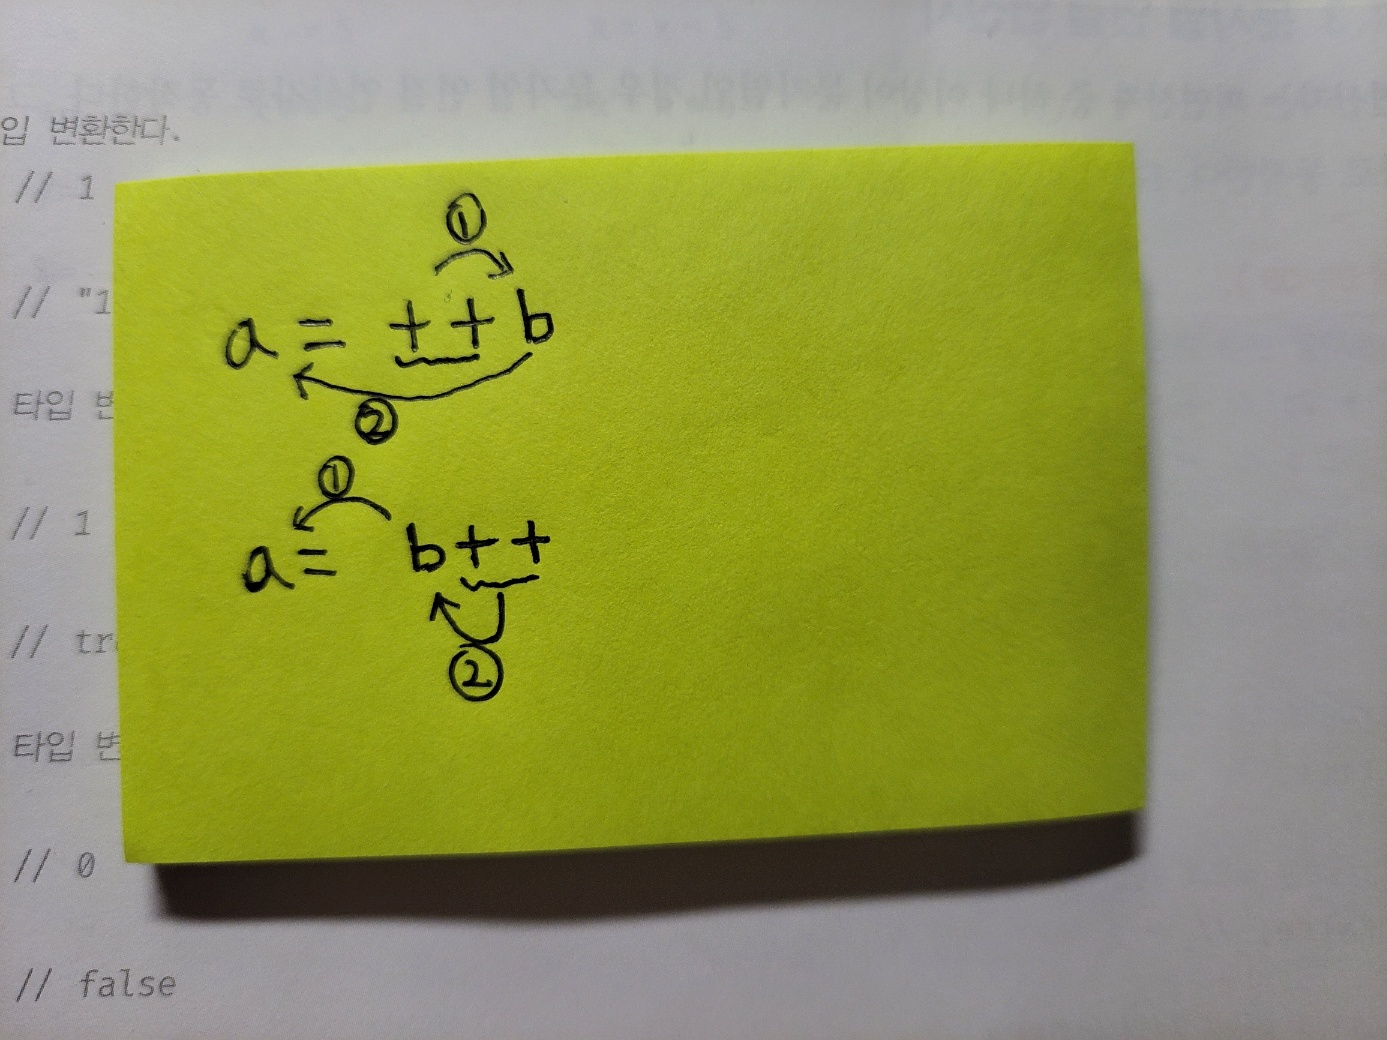 입 변환한다.
// 1
①
// "1
a = ++b
②
타입 변
①
// 1
a = b++
// tr
②
타입 변
// 0
// false